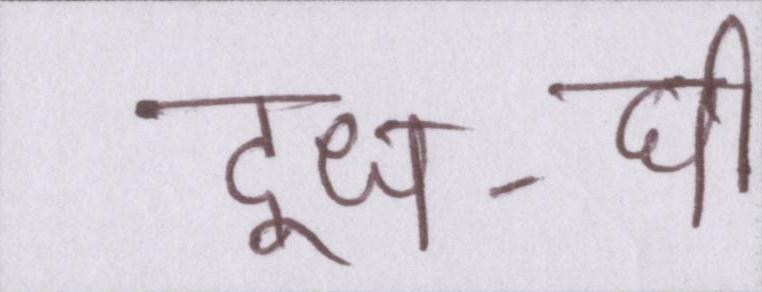 दूध - घी